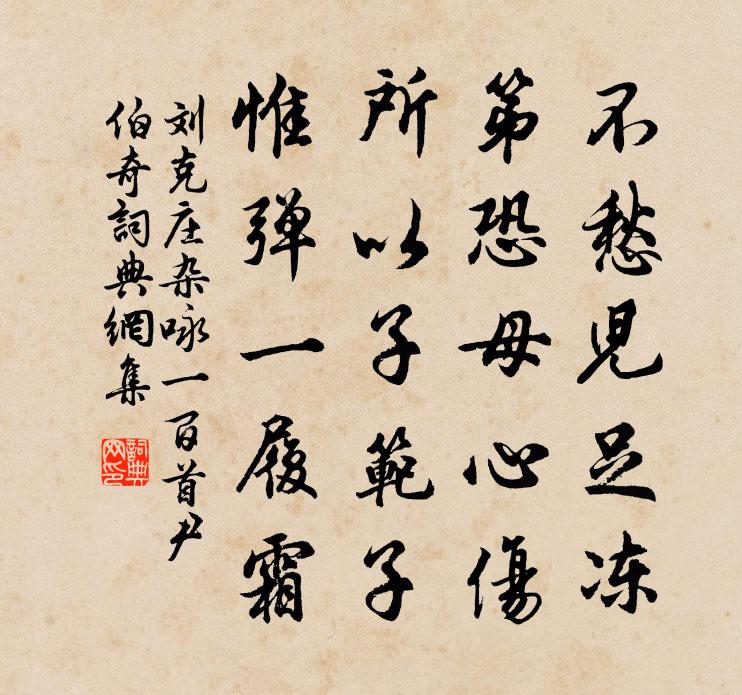 不愁児足冻
第恐母心傷
所以子範子
惟弹一履霜
刘克庄杂咏一百首尹
伯奇詞典網集
詞典网印